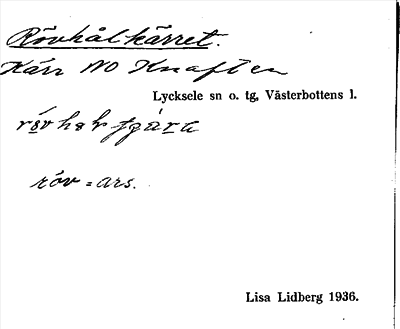 Rövhålkärret.
Kärr NO Knaften
Lycksele sn o. tg, Västerbottens l.
röv = ars.
Lisa Lidberg 1936.